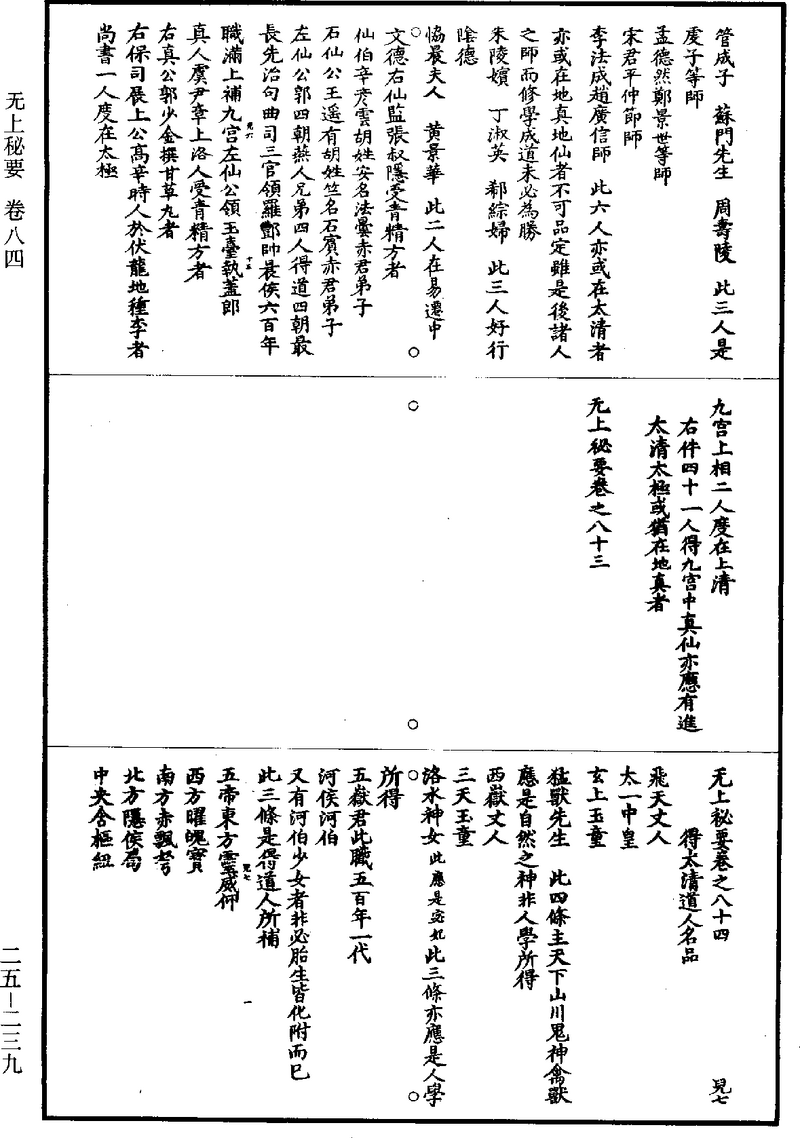 无上秘要　卷八四
二五—二三九
管成子　蘇門先生　周壽陵　此三人是
虔子等師
孟德然鄭景世等師
宋君平仲節師
李法成趙廣信師　此六人亦或在太清者
亦或在地真地仙者不可品定雖是後諸人
之師而修學成道未必為勝
朱陵嬪　丁淑英　郗綜婦　此三人好行
陰德
恊晨夫人　黃景華　此二人在易遷中
文德右仙監張叔隱受青精方者
仙伯辛彥雲胡姓安名法曇赤君弟子
石仙公王遥有胡姓竺名石賓赤君弟子
左仙公郭四朝燕人兄弟四人得道四朝最
長先治句曲司三官領羅酆帥晨侯六百年
職滿上補九宫左仙公領玉臺執蓋郎
真人虞尹章上洛人受青精方者
右真公郭少金撰甘草丸者
右保司展上公高辛時人於伏龍地種李者
尚書一人度在太極
九宫上相二人度在上清
右件四十一人得九宫中真仙亦應有進
太清太極或猶在地真者
无上秘要卷之八十三
无上秘要卷之八十四　見七
得太清道人名品
飛天丈人
太一中皇
玄上玉童
猛獸先生　此四條主天下山川鬼神禽獸
應是自然之神非人學所得
西嶽丈人
三天玉童
洛水神女此應是宓妃此三條亦應是人學
所得
五嶽君此職五百年一代
河侯河伯
又有河伯少女者非必胎生皆化附而已
此三條是得道人所補
五帝東方靈威仰
西方曜魄寶
南方赤飄弩
北方隱侯局
中央含樞紐